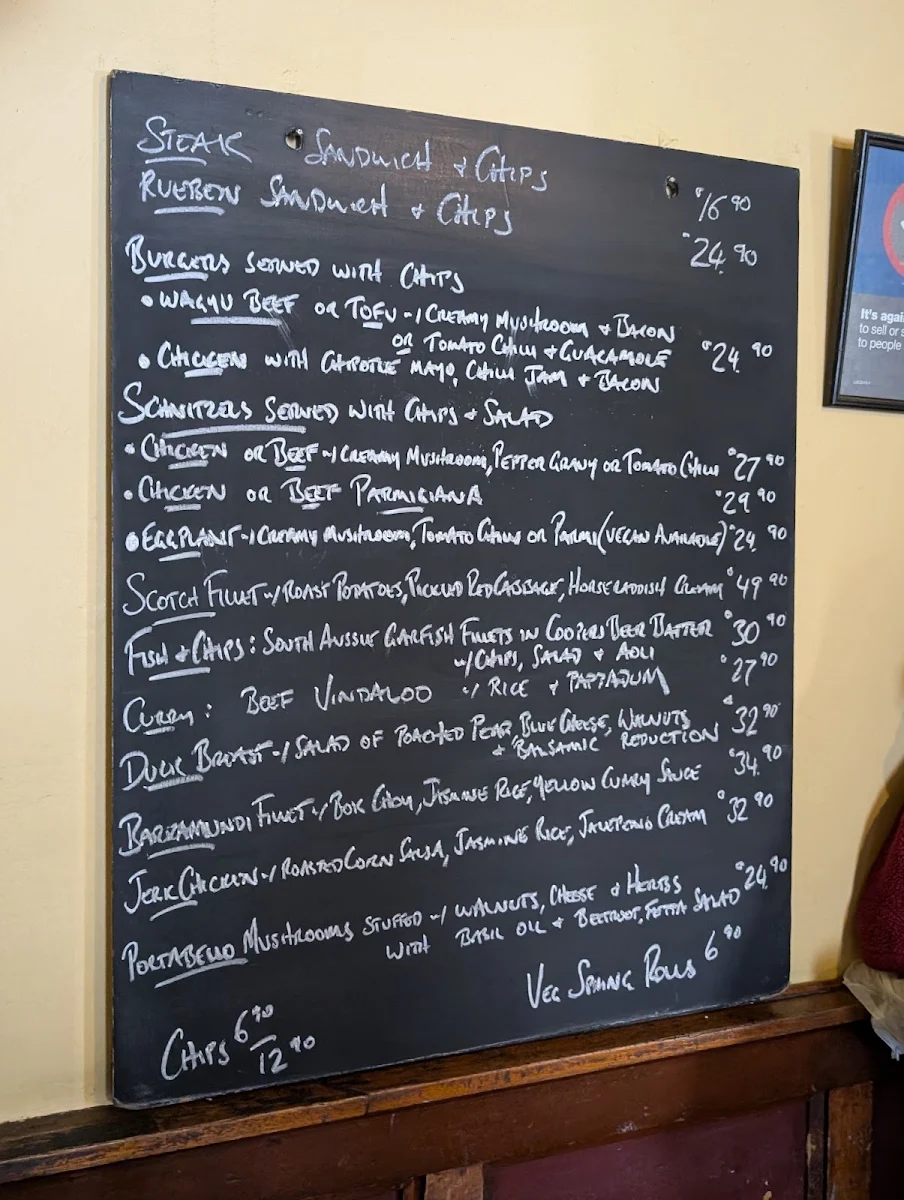 STEAK SANDWICH & CHIPS $16.90
RUEBEN SANDWICH & CHIPS $24.90
BURGERS SERVED WITH CHIPS
• WAGYU BEEF OR TOFU w/ CREAMY MUSHROOM & BACON
OR TOMATO CHILLI & GUACAMOLE $24.90
• CHICKEN WITH CHIPOTLE MAYO, CHILLI JAM & BACON
SCHNITZELS SERVED WITH CHIPS & SALAD
• CHICKEN OR BEEF w/ CREAMY MUSHROOM, PEPPER GRAVY OR TOMATO CHILLI $27.90
• CHICKEN OR BEEF PARMIGIANA $29.90
• EGGPLANT w/ CREAMY MUSHROOM, TOMATO CHILLI OR PARMI (VEGAN AVAILABLE) $24.90
SCOTCH FILLET w/ ROAST POTATOES, PICKLED RED CABBAGE, HORSERADDISH CREAM $49.90
FISH & CHIPS: SOUTH AUSSIE GARFISH FILLETS IN COOPERS BEER BATTER $30.90
w/ CHIPS, SALAD & AOLI
CURRY: BEEF VINDALOO w/ RICE & PAPPADUM $27.90
DUCK BREAST w/ SALAD OF POACHED PEAR, BLUE CHEESE, WALNUTS $32.90
& BALSAMIC REDUCTION
BARRAMUNDI FILLET w/ BOK CHOY, JASMINE RICE, YELLOW CURRY SAUCE $34.90
JERK CHICKEN w/ ROASTED CORN SALSA, JASMINE RICE, JALEPENO CREAM $32.90
PORTABELLO MUSHROOMS STUFFED w/ WALNUTS, CHEESE & HERBS $24.90
WITH BASIL OIL & BEETROOT, FETTA SALAD
VEG SPRING ROLLS 6.90
CHIPS 6.90/12.90
It's agai
to sell or s
to people